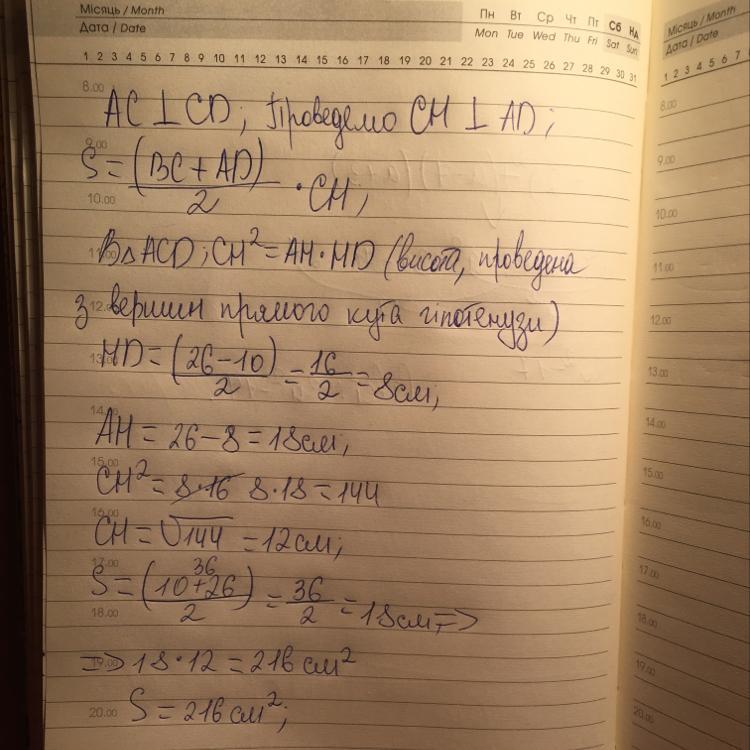 Місяць / Month
Дата / Date
Пн Вт Ср Чт Пт Сб Нд
Mon Tue Wed Thu Fri Sat Sun
1 2 3 4 5 6 7 8 9 10 11 12 13 14 15 16 17 18 19 20 21 22 23 24 25 26 27 28 29 30 31
8.00
AC ⊥ CD; Проведемо CH ⊥ AD;
9.00
S = (BC + AD)/2 · CH;
10.00
11.00
В △ ACD; CH² = AH · HD (висота, проведена
12.00
з вершин прямого кута гіпотенузи)
13.00
HD = (26 − 10)/2 = 16/2 = 8см,
14.00
AH = 26 − 8 = 18см,
15.00
CH² = 8·16 8·18 = 144
16.00
CH = √144 = 12см;
17.00
36
S = (10+26)/2 = 36/2 = 18см =>
18.00
19.00
=> 18 · 12 = 216 см²
S = 216 см²;
20.00
Місяць / Month
Дата / Date
1 2 3 4 5 6 7
8.00
9.00
10.00
11.00
12.00
13.00
14.00
15.00
16.00
17.00
18.00
19.00
20.00